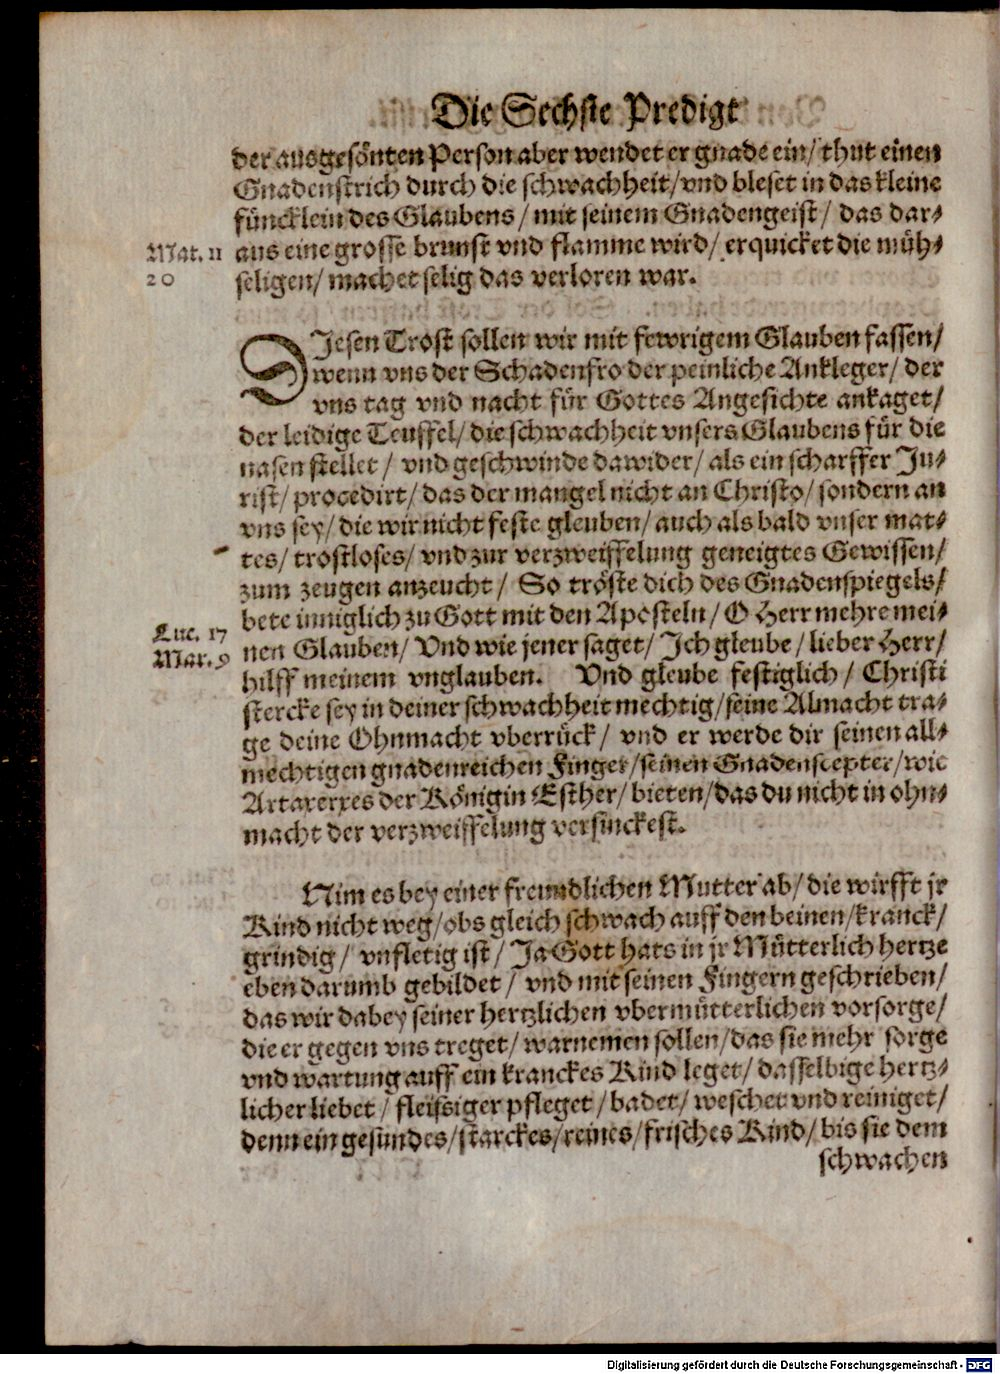 Die Sechste Predigt
der ausgesönten Person aber wendet er gnade ein/ thut einen
Gnadenstrich durch die schwachheit/ vnd bleset in das kleine
füncklein des Glaubens/ mit seinem Gnadengeist/ das dar-
Mat. 11
aus eine grosse brunst vnd flamme wird/ erquicket die müh-
20
seligen/ machet selig das verloren war.
DJesen Trost sollen wir mit fewrigem Glauben fassen/
wenn vns der Schadenfro der peinliche Ankleger/ der
vns tag vnd nacht für Gottes Angesichte ankaget/
der leidige Teuffel/ die schwachheit vnsers Glaubens für die
nasen stellet/ vnd geschwinde dawider/ als ein scharffer Ju-
rist/ procedirt/ das der mangel nicht an Christo/ sondern an
vns sey/ die wir nicht feste gleuben/ auch als bald vnser mat-
tes/ trostloses/ vnd zur verzweiffelung geneigtes Gewissen/
zum zeugen anzeucht/ So tröste dich des Gnadenspiegels/
bete inniglich zu Gott mit den Aposteln/ O Herr mehre mei-
Luc. 17
nen Glauben/ Vnd wie jener saget/ Jch gleube/ lieber Herr/
Mar. 9
hilff meinem vnglauben. Vnd gleube festiglich/ Christi
stercke sey in deiner schwachheit mechtig/ seine Almacht tra-
ge deine Ohnmacht vberrück/ vnd er werde dir seinen all-
mechtigen gnadenreichen Finger/ seinen Gnadenscepter/ wie
Artaxerxes der Königin Esther/ bieten/ das du nicht in ohn-
macht der verzweiffelung versinckest.
Nim es bey einer freundlichen Mutter ab/ die wirfft jr
Kind nicht weg/ obs gleich schwach auff den beinen/ kranck/
grindig/ vnfletig ist/ Ja Gott hats in jr Mütterlich hertze
eben darumb gebildet/ vnd mit seinen Fingern geschrieben/
das wir dabey seiner hertzlichen vbermütterlichen vorsorge/
die er gegen vns treget/ warnemen sollen/ das sie mehr sorge
vnd wartung auff ein kranckes Kind leget/ dasselbige hertz-
licher liebet/ fleissiger pfleget/ badet/ weschet vnd reiniget/
denn ein gesundes/ starckes/ reines/ frisches Kind/ bis sie dem
schwachen
Digitalisierung gefördert durch die Deutsche Forschungsgemeinschaft - DFG